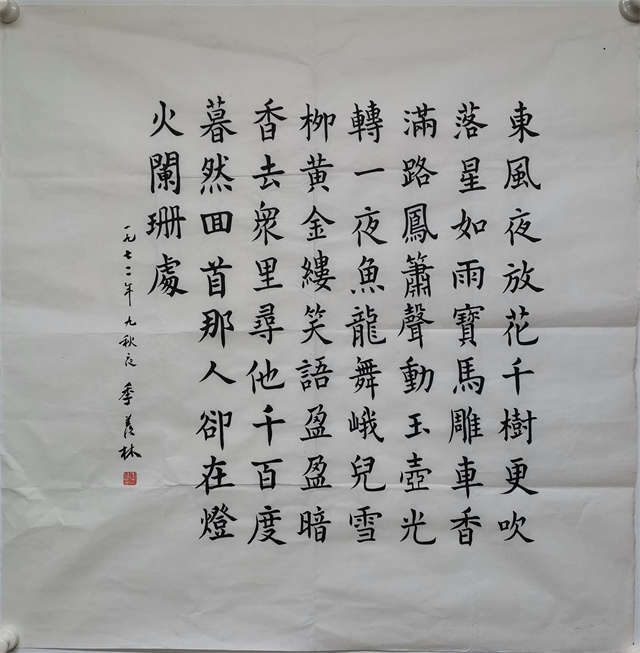 東風夜放花千樹更吹
落星如雨寶馬雕車香
滿路鳳簫聲動玉壺光
轉一夜魚龍舞峨兒雪
柳黄金縷笑語盈盈暗
香去衆里尋他千百度
暮然回首那人卻在燈
火闌珊處
一九七二年九秋夜 季羡林